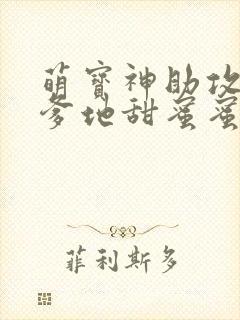 萌宝神助攻
爹地甜蜜蜜
菲利斯多